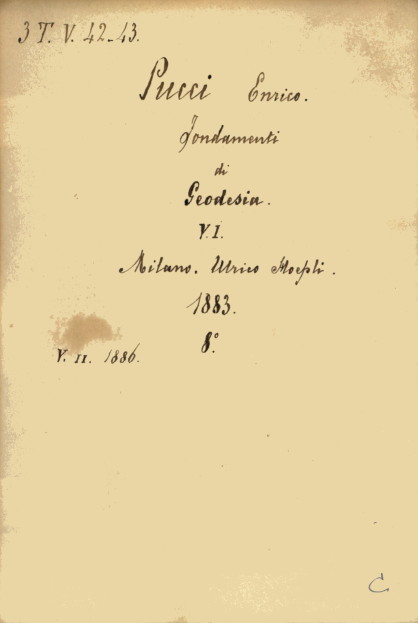 3 T. V. 42-43.
Pucci Enrico.
Fondamenti
di
Geodesia.
V. I.
Milano. Ulrico Hoepli.
1883.
8°
V. II. 1886.
C